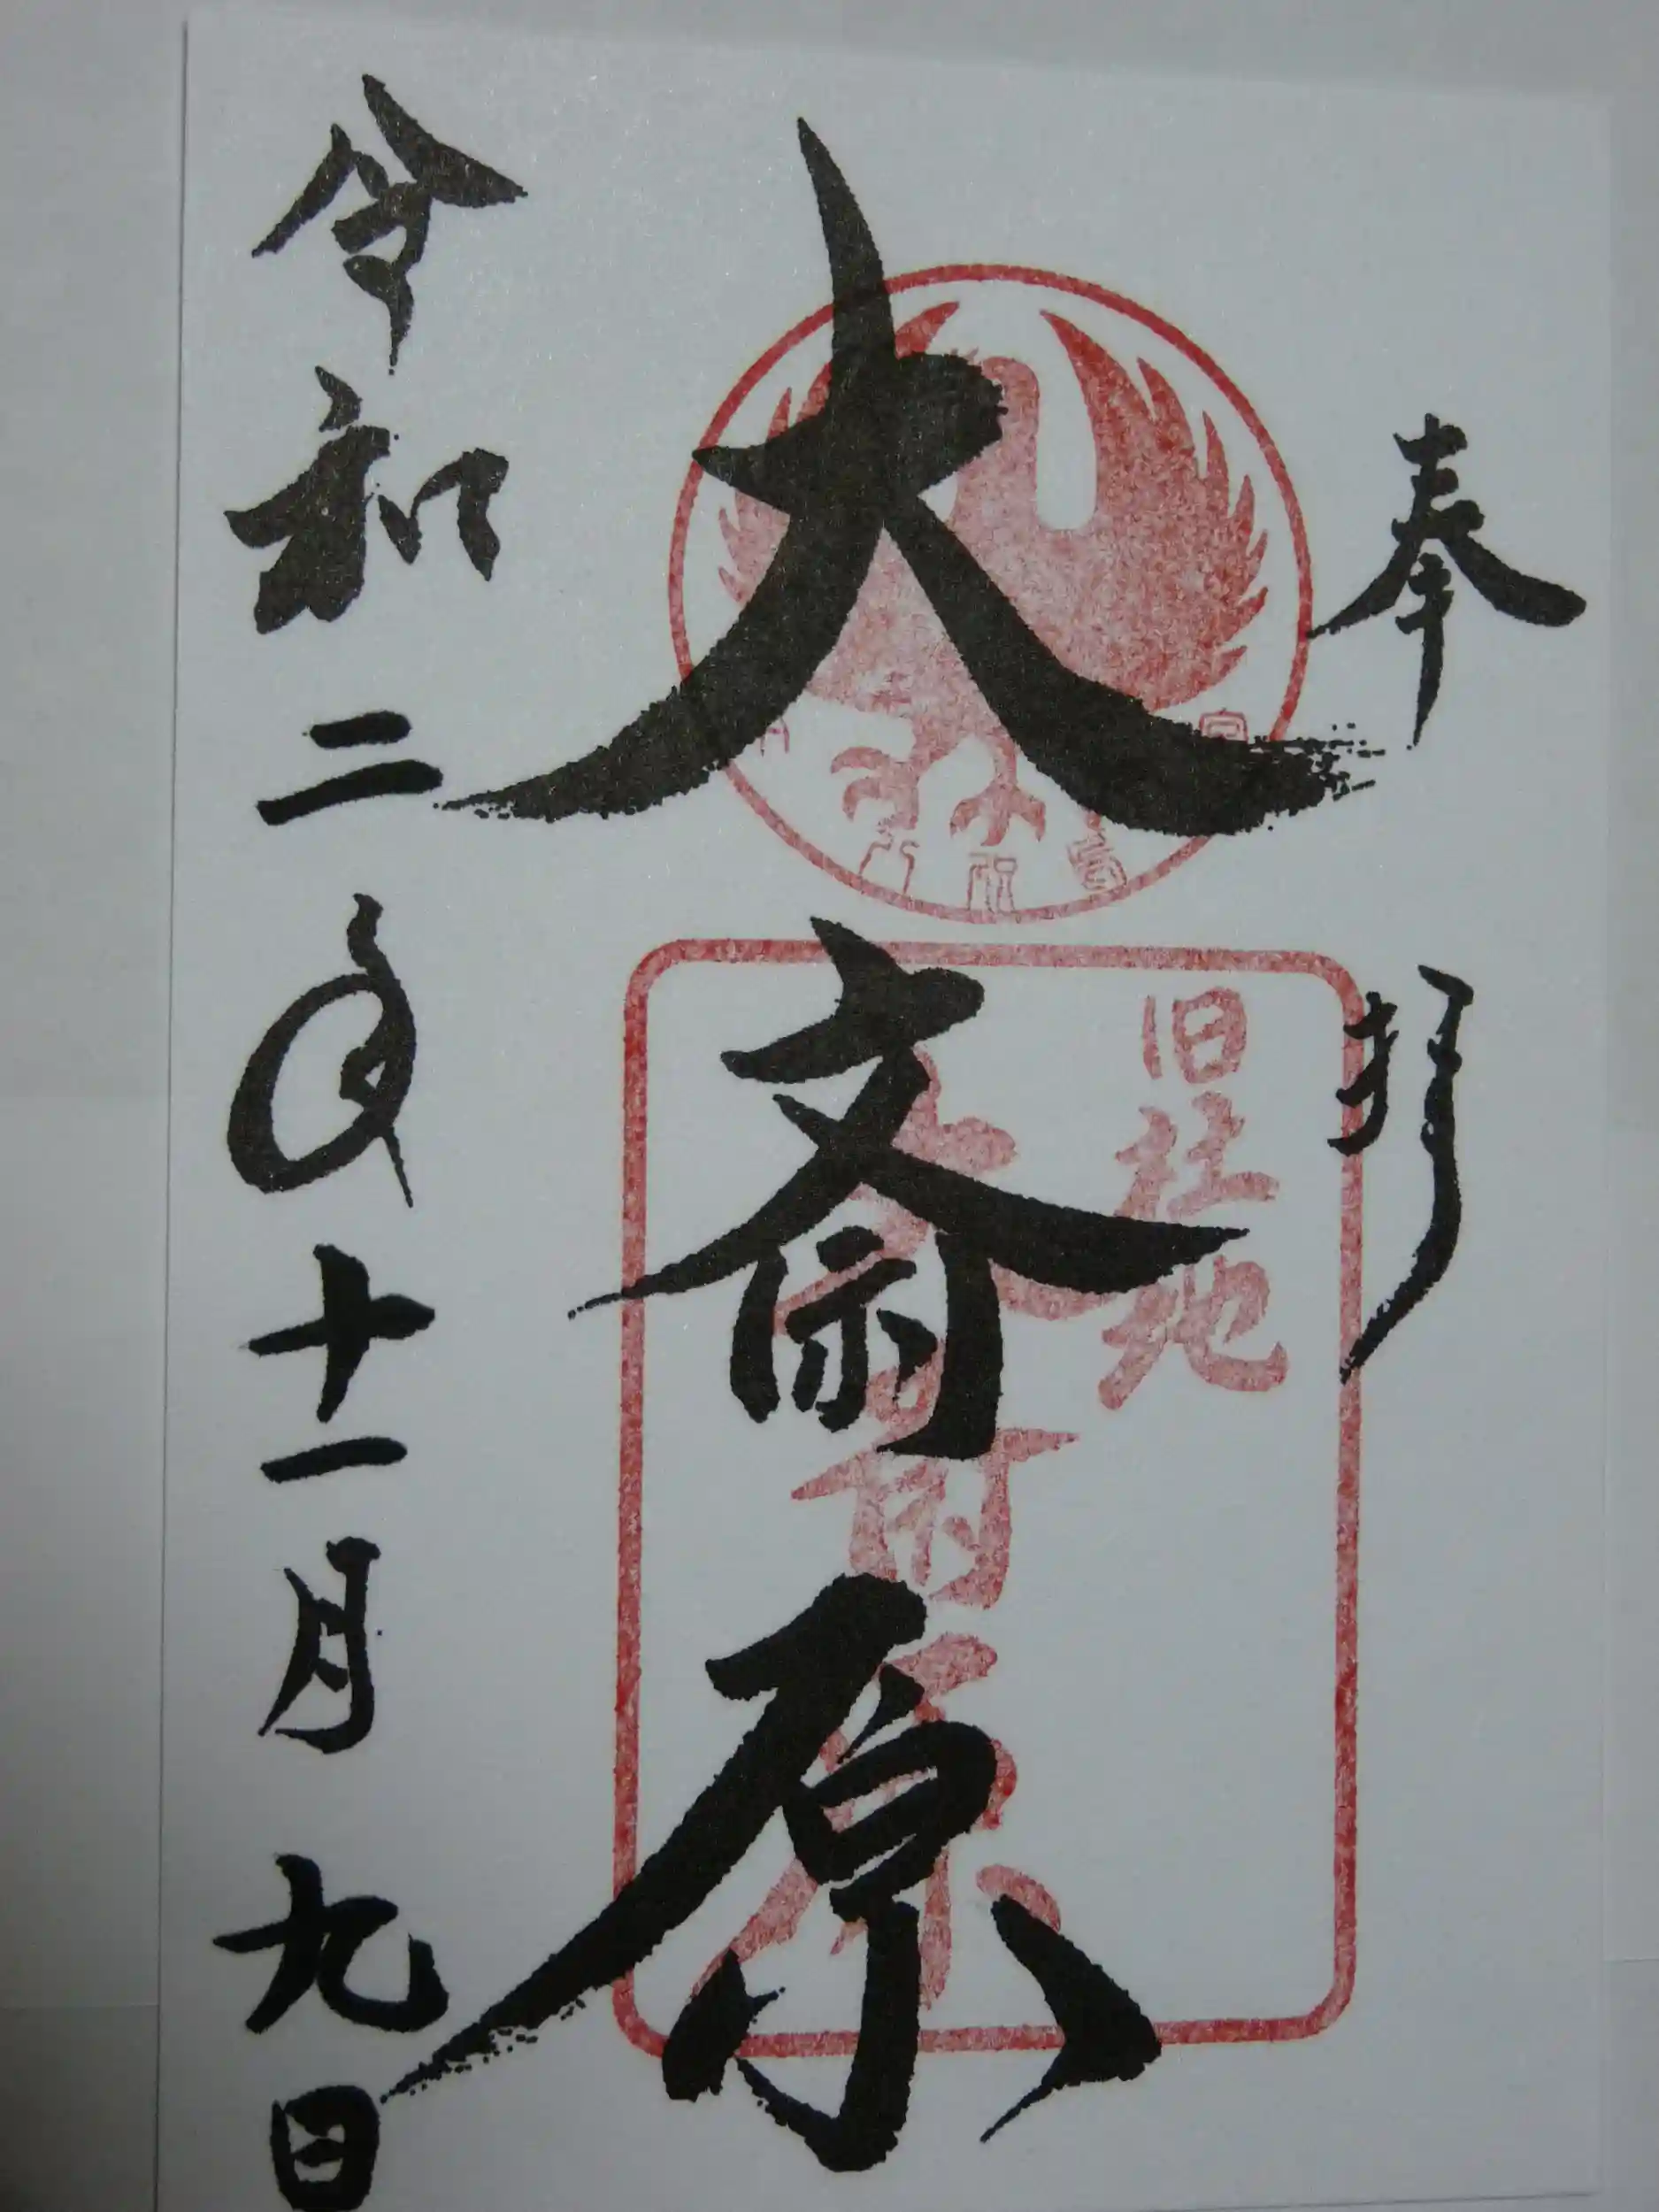 奉拝
大斎原
令和二年十一月九日
旧社地
大斎原